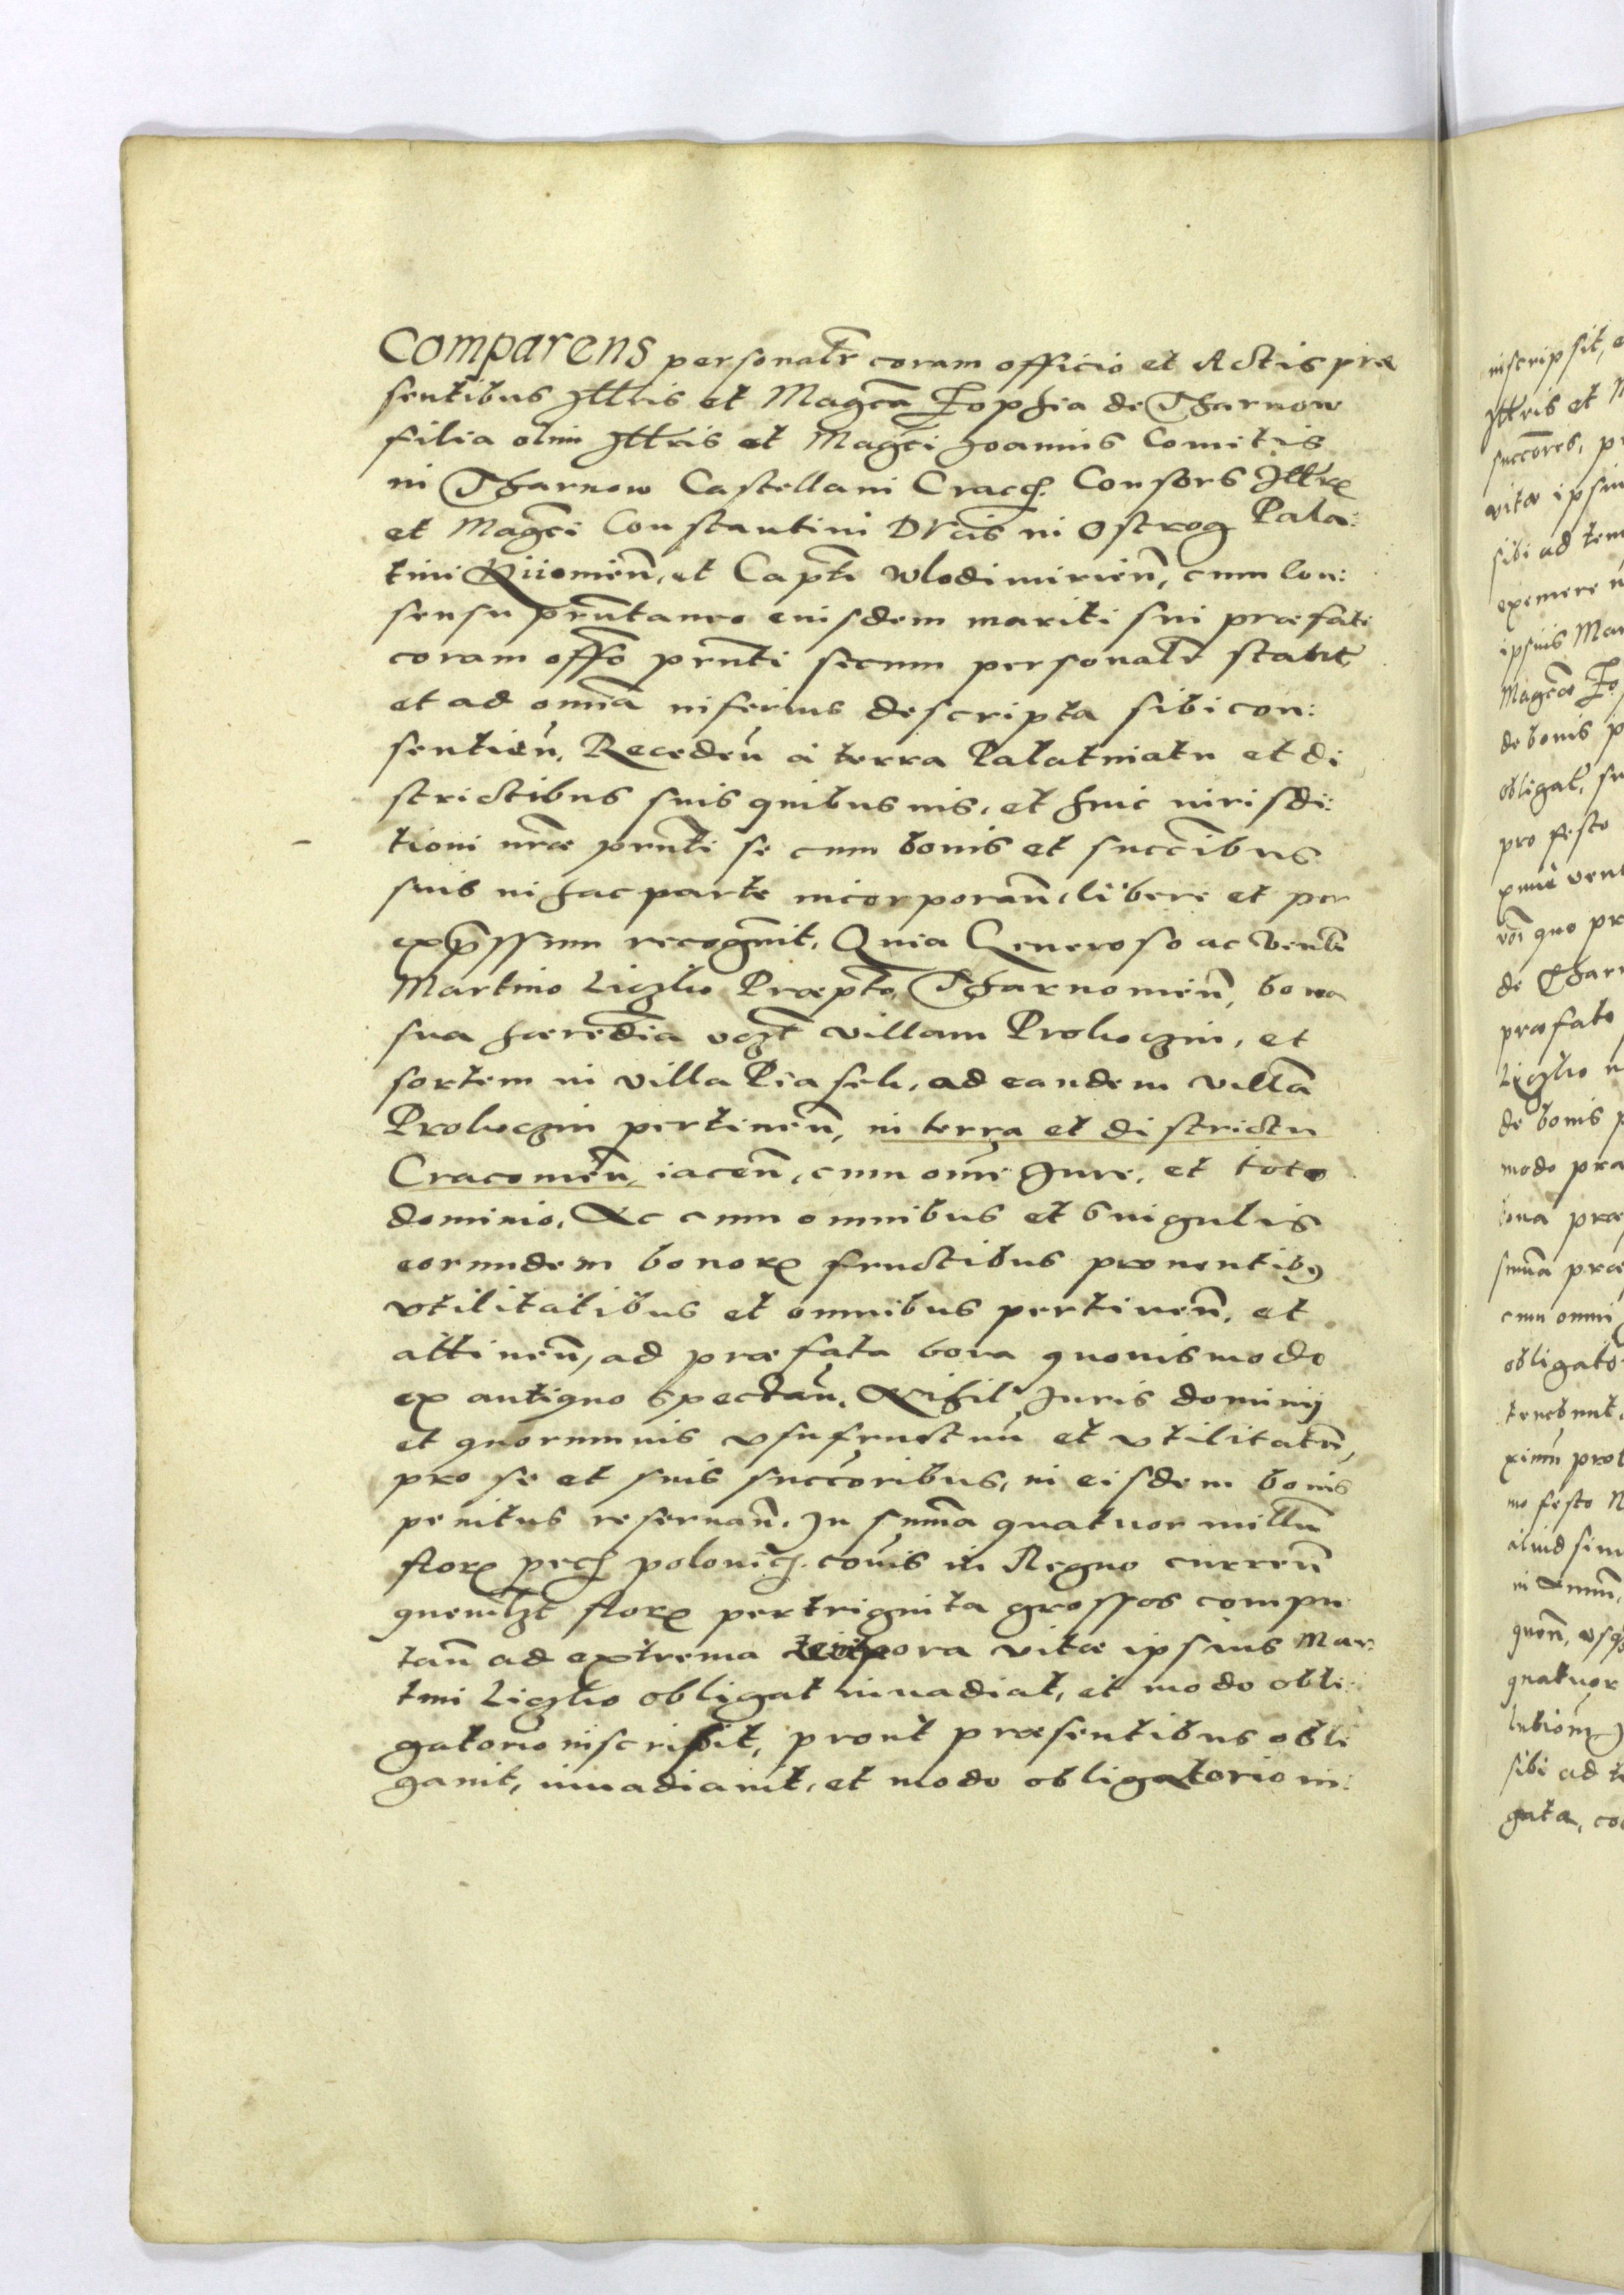 Comparens personalr̃ coram officio et Actis præ
sentibus Illtris et Magcã Zophia de Tharnow
filia olim Illtris et Magci Joannis Comitis
in Tharnow Castellani Cracch. Consors Illtr
et Magci Constantini Ducis in Ostrog Pala:
tini Kiiouien̄, et Capti Wlodimirien̄, cum con:
sensu pn̄taneo eiusdem mariti sui præfati
coram offō pn̄ti secum personalr̃ stant
et ad omnia inferius descripta sibi con:
sentien̄. Receden̄ à terra Palatinatu et di
strictibus suis quibusuis, et huic iurisdi:
tioni nr̃æ pn̄ti se cum bonis et succibus
suis in hac parte incorporan̄, libere et per
exp̄ssum recognuit. Quia Generoso ac Venbli
Martino Liczko Præpto, Tharnouien̄, bona
sua hæredia vczt villam Prokoczin, et
sortem in villa Piasek, ad eandem villā
Prokoczin pertinen̄, in terra et districtu
Cracouien̄, iacen̄, cum omni Jure, et toto
dominio. Ac cum omnibus et singulis
eorundem bonor fructibus prouentibq
vtilitatibus et omnibus pertinen̄, et
attinen̄, ad præfata bona quouismodo
ex antiquo spectan̄. Nihil Juris dominij
et quorumuis vsufructuū et vtilitatū,
pro se et suis succoribus, in eisdem bonis
penitus reseruan̄. In summa quatuor milliū
flor pecch polonich. cōuis in Regno curren̄
quemlzt flor per triginta grossos compu
tan̄ ad extrema tempora vitæ ipsius Mar:
tini Liczko obligat inuadiat, et modo obli:
gatorio inscribit, prout præsentibus obli
gauit, inuadiauit, et modo obligatorio in:
inscripsit, e
Illtris et M
succores, pr
vitæ ipsiu
sibi ad tem
eximere
ipsius Mar
Magcæ Zo
de bonis p
obligat, su
pro festo
quo pr
de Thar
præfato
Liczko
de bonis p
modo præ
bona præ
summa præ
cum omni
obligato
tenebunt
festo N
aliud sim
quatuor
sibi ad t
gata, co